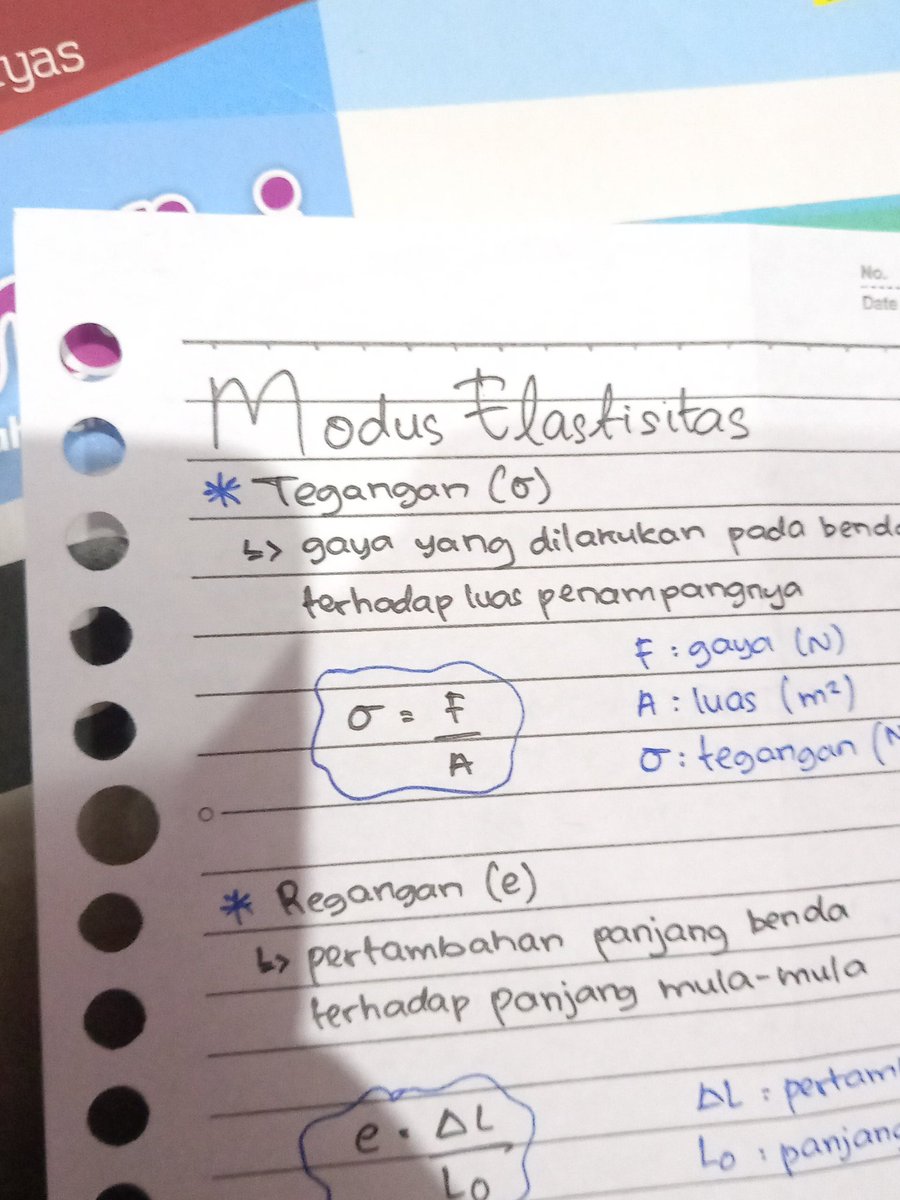 yas
No.
Date
Modus Elastisitas
* Tegangan (σ)
↳ gaya yang dilakukan pada benda
terhadap luas penampangnya
σ = F/A
F : gaya (N)
A : luas (m²)
σ : tegangan (N
* Regangan (e)
↳ pertambahan panjang benda
terhadap panjang mula-mula
e = ΔL/Lo
ΔL : pertam
Lo : panjang